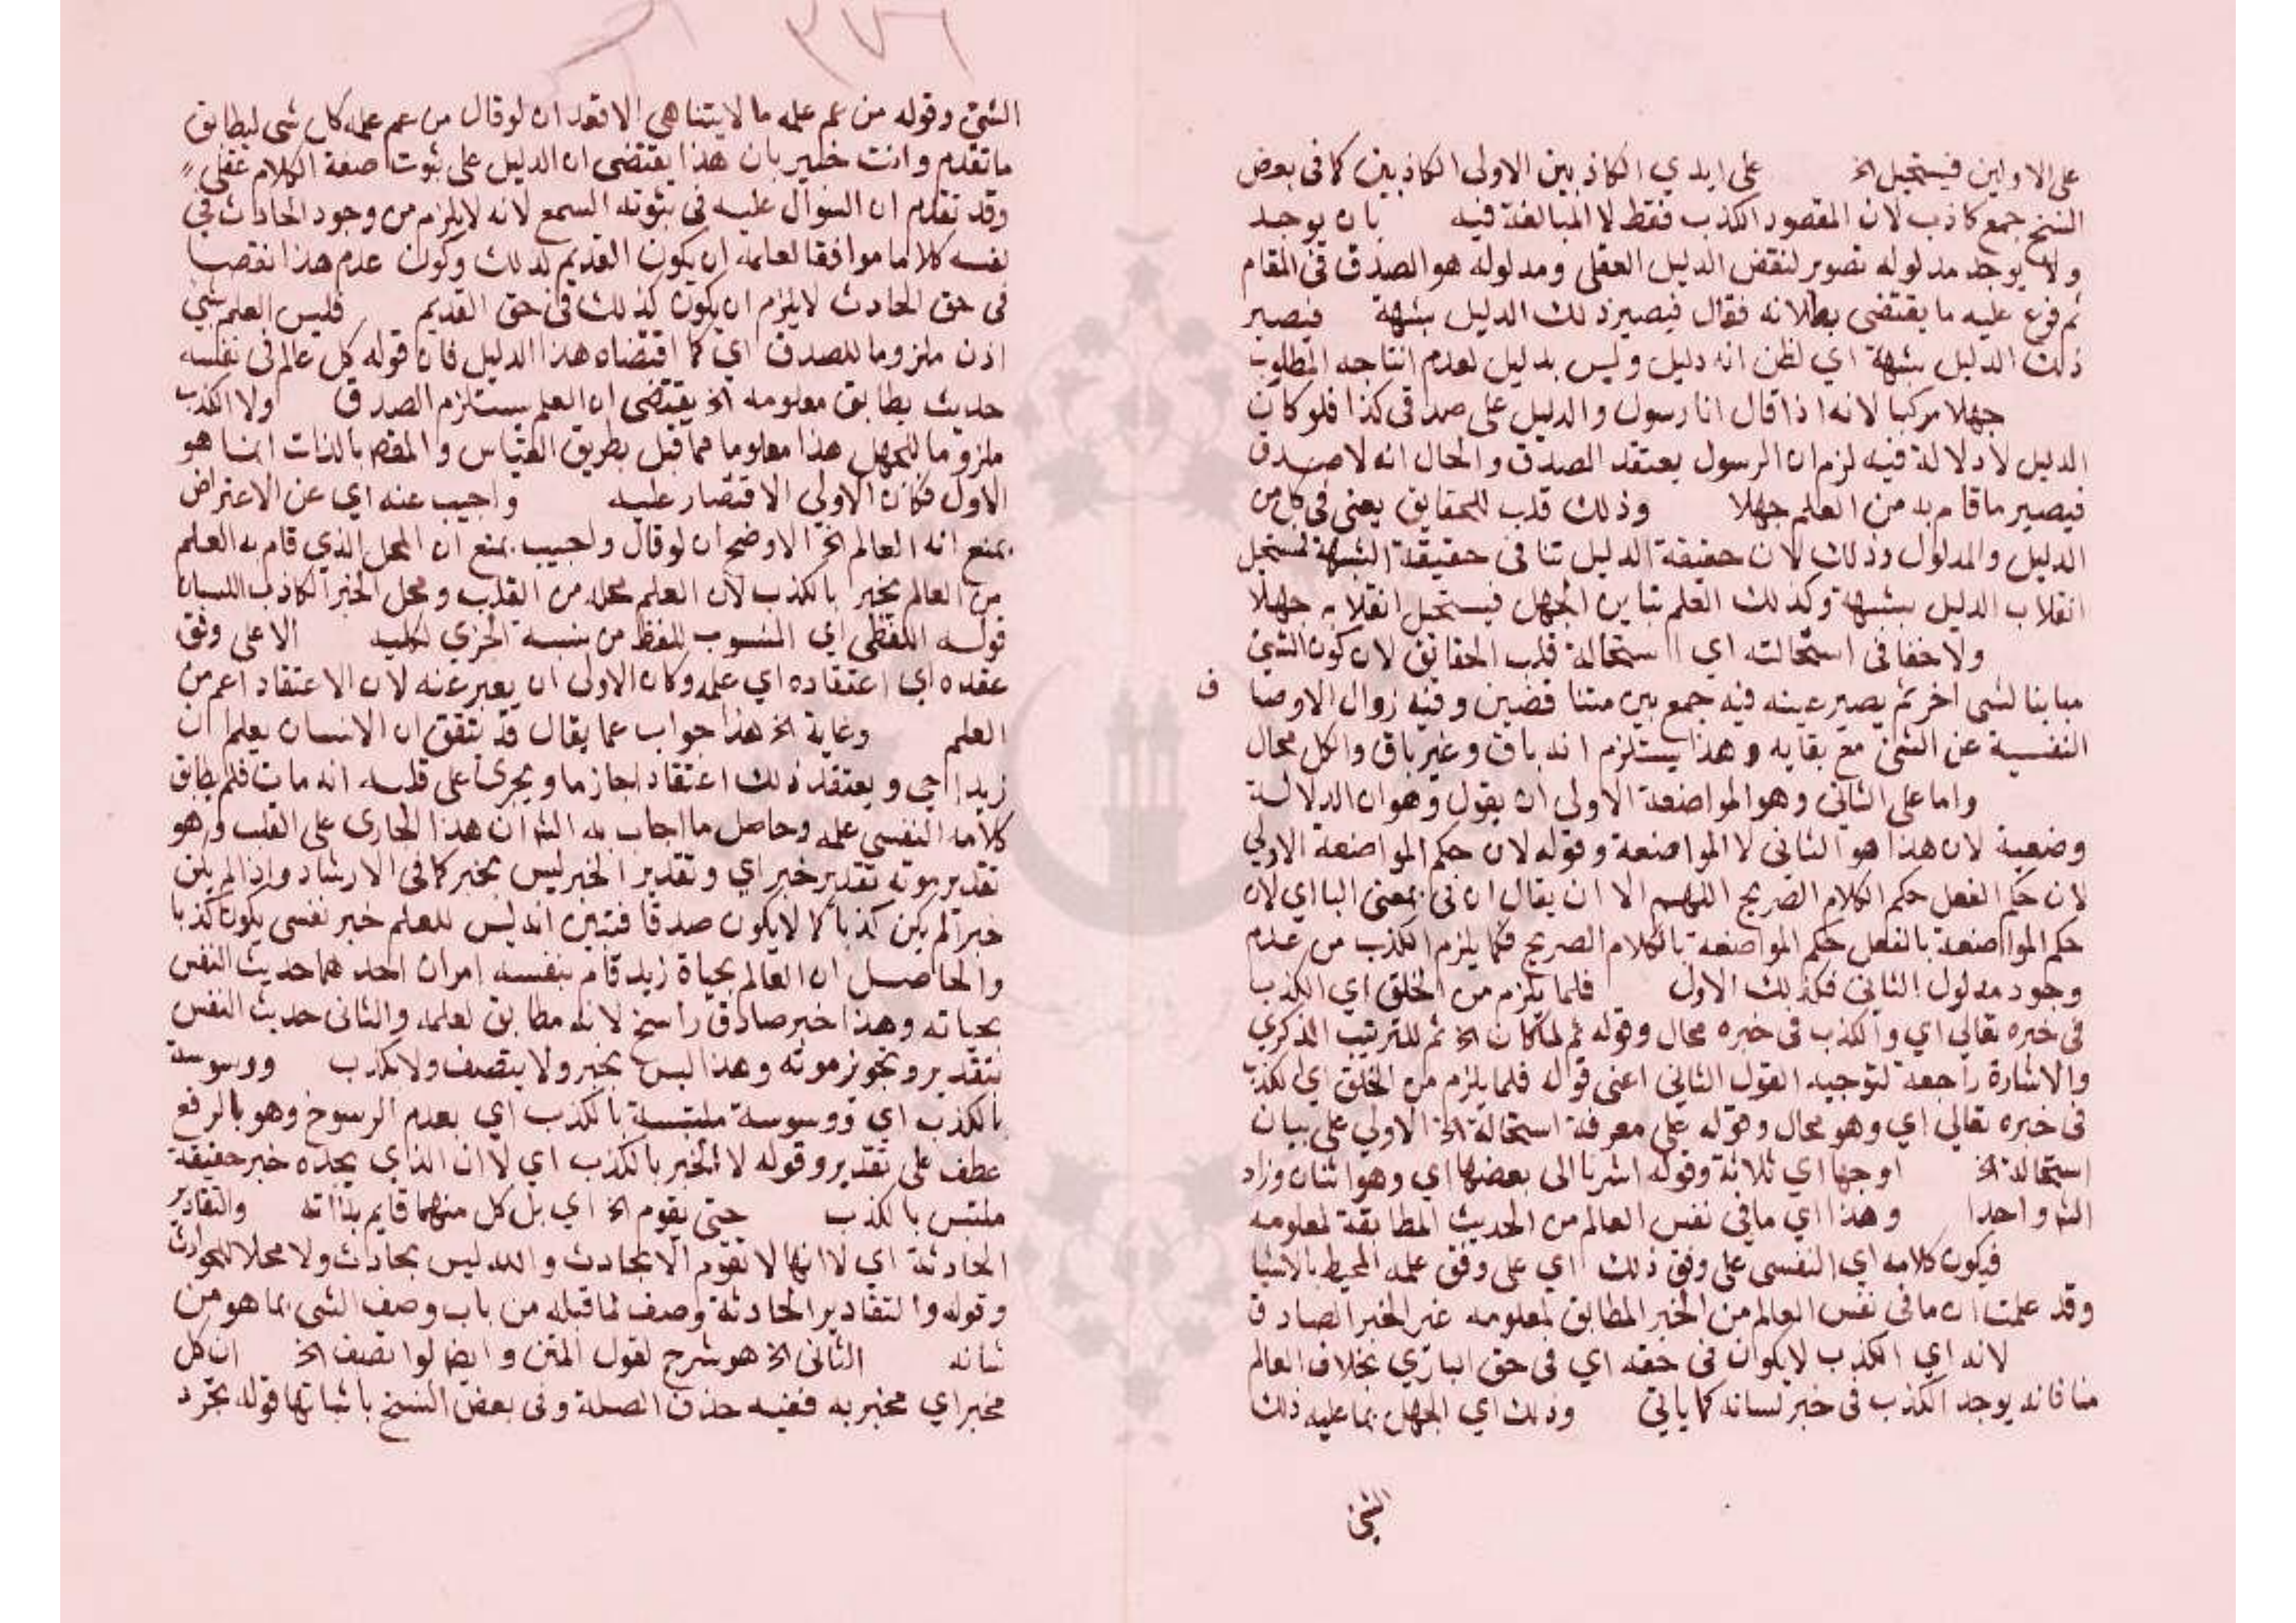 على الاولين فيستحيل الخ على ايدي الكاذبين الاولى الكاذبين كما في بعض
النسخ جمع كاذب لان المقصود الكذب فقط لا المبالغة فيه بان يوجد
ولا يوجد مدلوله تصوير لنقض الدليل العقلي ومدلوله هو الصدق في المقام
ثم فرع عليه ما يقتضي بطلانه فقال فيصير ذلك الدليل شبهة فيصير
ذلك الدليل شبهة اي لظن انه دليل وليس بدليل لعدم انتاجه المطلوب
جهلا مركبا لانه اذا قال انا رسول والدليل على صدقي كذا فلو كان
الدليل لا دلالة فيه لزم ان الرسول يعتقد الصدق والحال انه لا صدق
فيصير ما قام به من العلم جهلا وذلك قلب للحقايق يعني في كل من
الدليل والمدلول وذلك لان حقيقة الدليل تنافي حقيقة الشبهة فيستحيل
انقلاب الدليل شبهة وكذلك العلم تباين الجهل فيستحيل انقلابه جهلا
ولا خفا في استحالته اي استحالة قلب الحقائق لان كون الشئ
مباينا لشئ اخر ثم يصير عينه فيه جمع بين متناقضين وفيه زوال الاوصا ف
النفسية عن الشئ مع بقايه وهذا يستلزم انه باق وغير باق والكل محال
واما على الثاني وهو المواضعة الاولى ان يقول وهو ان الدلالة
وضعية لان هذا هو الثاني لا المواضعة وقوله لان حكم المواضعة الاولي
لان حكم الفعل حكم الكلام الصريح اللهم الا ان يقال ان في بمعني البا اي لان
حكم المواضعة بالفعل حكم المواضعة بالكلام الصريح فكما يلزم الكذب من عدم
وجود مدلول الثاني فكذلك الاول فلما يلزم من الخلق اي الكذب
في خبره تعالي اي والكذب في خبره محال وقوله ثم لما كان الخ ثم للترتيب الذكري
والاشارة راجعة لتوجيه القول الثاني اعني قوله فلما يلزم من الخلق اي الكذب
في خبره تعالي اي وهو محال وقوله علي معرفة استحالة الخ الاولي علي بيان
استحالة الخ اوجها اي ثلاثة وقوله اشرنا الى بعضها اي وهو اثنان وزاد
الش واحدا وهذا اي ما في نفس العالم من الحديث المطابقة لمعلومه
فيكون كلامه اي النفسي على وفق ذلك اي على وفق علمه المحيط بالاشيا
وقد علمت ان ما في نفس العالم من الخبر المطابق لمعلومه غير الخبر الصادق
لانه اي الكذب لا يكون في حقه اي في حق الباري بخلاف العالم
منا فانه يوجد الكذب في خبر لسانه كما ياتي وذلك اي الجهل بما عليه ذلك
الشئ
الشئ وقوله من عم علمه ما لا يتناهى الا قعد ان لو قال من عم علمه كل شى ليطابق
ما تقدم وانت خبير بان هذا يقتضي ان الدليل على ثبوت صفة الكلام عقلي
وقد تقدم ان السؤال عليه في ثبوته السمع لانه لا يلزم من وجود الحادث في
نفسه كلاما موافقا لعلمه ان يكون القديم كذلك وكون عدم هذا نقصا
في حق الحادث لا يلزم ان يكون كذلك في حق القديم فليس العلم شئ
اذن ملزوما للصدق اي كما اقتضاه هذا الدليل فان قوله كل عالم في نفسه
حديث يطابق معلومه الخ يقتضي ان العلم يستلزم الصدق ولا الكذب
ملزوما للجهل هذا معلوما مما قبل بطريق القياس والمقص بالذات انما هو
الاول فكان الاولي الاقتصار عليه واجيب عنه اي عن الاعتراض
بمنع انه العالم الخ الاوضح ان لو قال واجيب بمنع ان المحل الذي قام به العلم
من العالم يخبر بالكذب لان العلم محله من القلب ومحل الخبر الكاذب اللسان
قوله اللفظي اي المنسوب للفظ من نسبة الجزي لكليه الا على وفق
عقده اي اعتقاده اي علمه وكان الاولى ان يعبر عنه لان الاعتقاد اعم من
العلم وغاية الخ هذا جواب عما يقال قد يتفق ان الانسان يعلم ان
زيدا حي ويعتقد ذلك اعتقادا جازما ويجري على قلبه انه مات فلم يطابق
كلامه النفسي علمه وحاصل ما اجاب به الش ان هذا الجاري على القلب وهو
تقدير موته تقدير خبر اي وتقدير الخبر ليس بخبر كما في الارشاد واذا لم يكن
خبرا لم يكن كذبا كما لا يكون صدقا فتبين انه ليس للعلم خبر نفسي يكون كذبا
والحاصل ان العالم بحياة زيد قام بنفسه امران احدهما حديث النفس
بحياته وهذا خبر صادق راسخ لانه مطابق لعلمه والثاني حديث النفس
بتقدير وتجويز موته وهذا ليس بخبر ولا يتصف ولا بكذب ووسوسة
بالكذب اي ووسوسة ملتبسة بالكذب اي بعدم الرسوخ وهو بالرفع
عطف على تقدير وقوله لا الخبر بالكذب اي لا ان الذي يجده خبر حقيقة
ملتبس بالكذب حتى يقوم الخ اي بل كل منهما قايم بذاته والتقادير
الحادثة اي لانها لا تقوم الا بحادث والله ليس بحادث ولا محلا للحوادث
وقوله والتقادير الحادثة وصف لما قبله من باب وصف الشي بما هو من
شانه الثاني الخ هو شرح لقول المتن وايضا لو اتصف الخ ان كل
مخبر اي مخبر به ففيه حذف الصلة وفي بعض النسخ باثباتها قوله تجرد